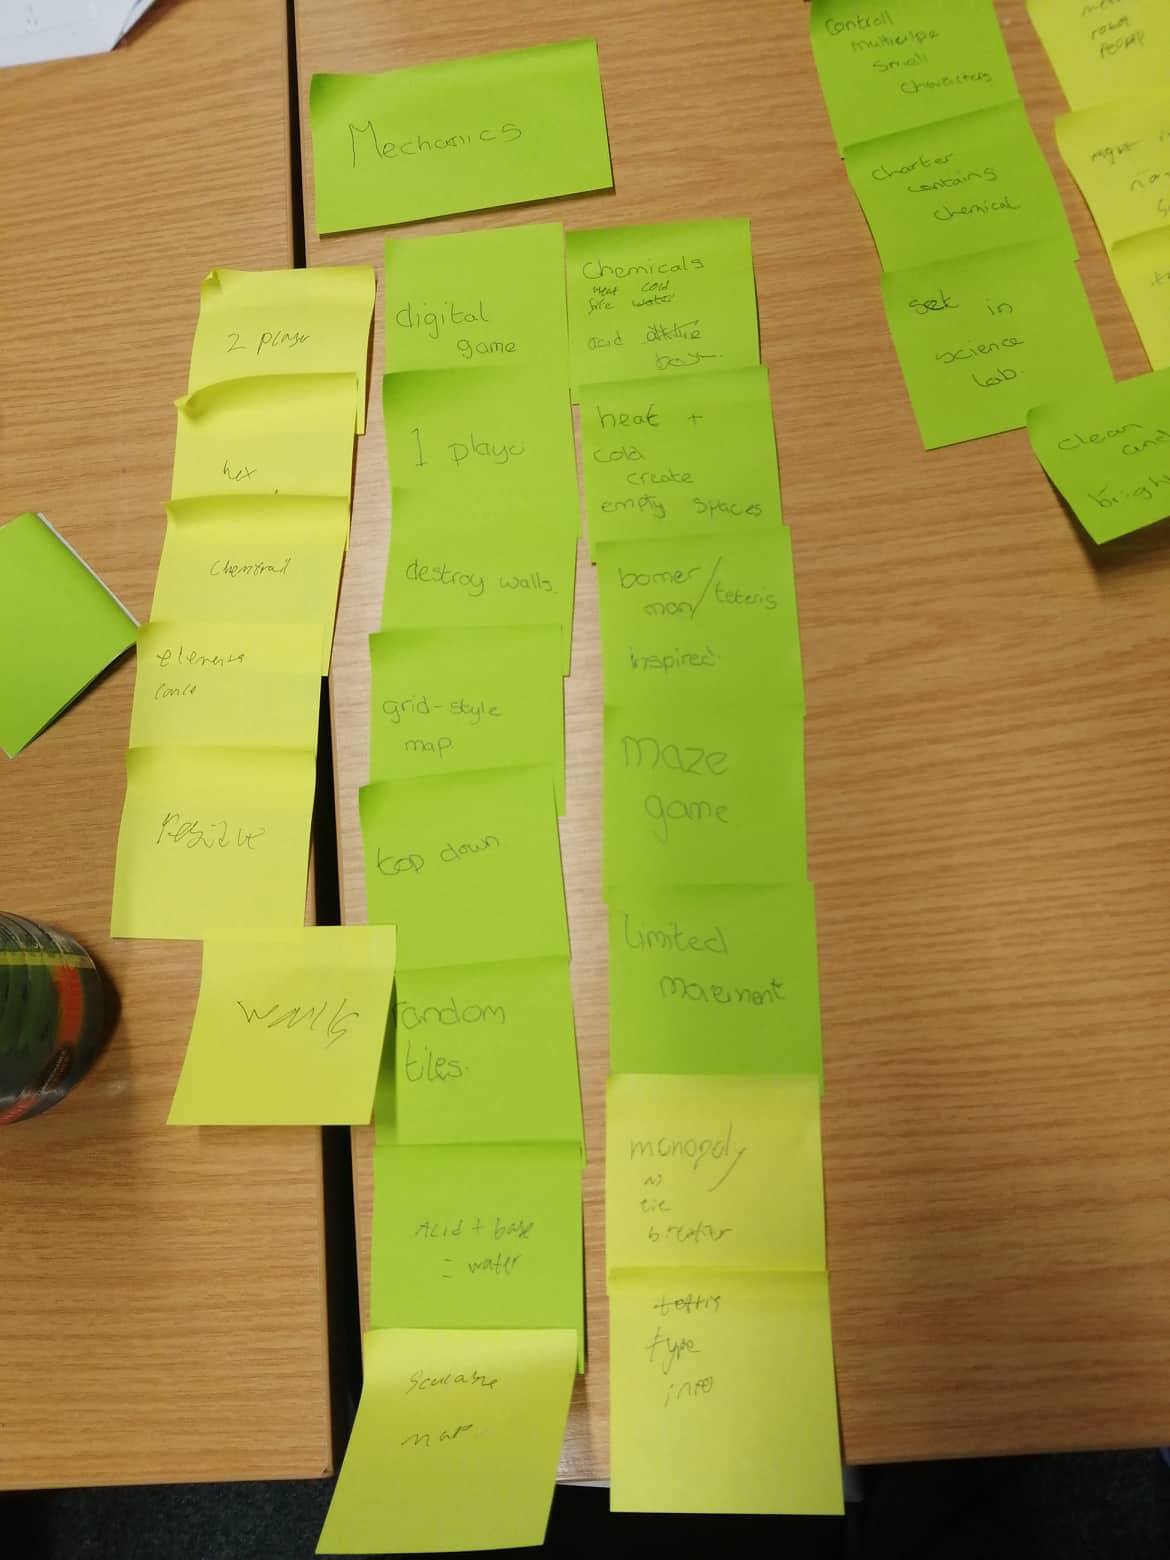 Mechanics
2 player
hex
chemtrail
elements
resitve
walls
digital
game
1 playe
destroy walls.
grid-style
map.
top down
random
tiles.
Acid + base
= water
Scalable
map
Chemicals
heat cold
fire water
acid
base
heat +
cold
create
empty spaces
bomer
man/teteris
inspired
maze
game
limited
movement
monopoly
tie
breaker
tetris
type
info
Controll
multiulpe
small
characters
charter
contains
chemical
set in
science
lab.
clean
and
bright
robot
might